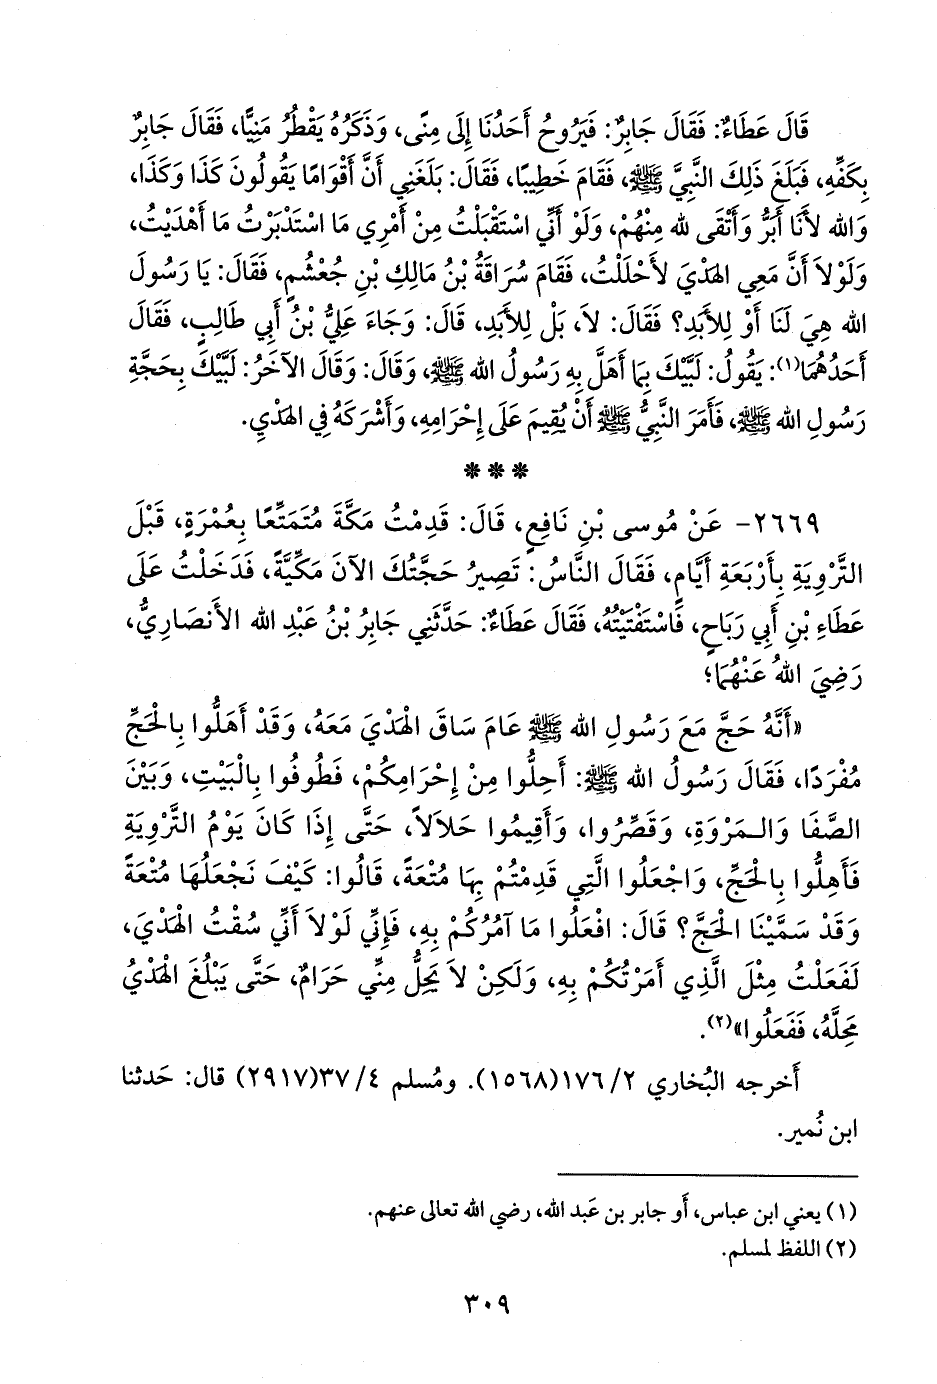 قَالَ عَطَاءٌ: فَقَالَ جَابِرٌ: فَيَرُوحُ أَحَدُنَا إِلَى مِنًى، وَذَكَرُهُ يَقْطُرُ مَنِيًّا، فَقَالَ جَابِرٌ
بِكَفِّهِ، فَبَلَغَ ذَلِكَ النَّبِيَّ ﷺ، فَقَامَ خَطِيبًا، فَقَالَ: بَلَغَنِي أَنَّ أَقْوَامًا يَقُولُونَ كَذَا وَكَذَا،
وَالله لأَنَا أَبَرُّ وَأَتْقَى لله مِنْهُمْ، وَلَوْ أَنِّي اسْتَقْبَلْتُ مِنْ أَمْرِي مَا اسْتَدْبَرْتُ مَا أَهْدَيْتُ،
وَلَوْلاَ أَنَّ مَعِي الهَدْيَ لأَحْلَلْتُ، فَقَامَ سُرَاقَةُ بْنُ مَالِكِ بْنِ جُعْشُمٍ، فَقَالَ: يَا رَسُولَ
الله هِيَ لَنَا أَوْ لِلأَبَدِ؟ فَقَالَ: لاَ، بَلْ لِلأَبَدِ، قَالَ: وَجَاءَ عَلِيُّ بْنُ أَبِي طَالِبٍ، فَقَالَ
أَحَدُهُمَا(١): يَقُولُ: لَبَّيْكَ بِمَا أَهَلَّ بِهِ رَسُولُ الله ﷺ، وَقَالَ: وَقَالَ الآخَرُ: لَبَّيْكَ بِحَجَّةِ
رَسُولِ الله ﷺ، فَأَمَرَ النَّبِيُّ ﷺ أَنْ يُقِيمَ عَلَى إِحْرَامِهِ، وَأَشْرَكَهُ فِي الهَدْيِ.
***
٢٦٦٩- عَنْ مُوسى بْنِ نَافِعٍ، قَالَ: قَدِمْتُ مَكَّةَ مُتَمَتِّعًا بِعُمْرَةٍ، قَبْلَ
التَّرْوِيَةِ بِأَرْبَعَةِ أَيَّامٍ، فَقَالَ النَّاسُ: تَصِيرُ حَجَّتُكَ الآنَ مَكِّيَّةً، فَدَخَلْتُ عَلَى
عَطَاءِ بْنِ أَبِي رَبَاحٍ، فَاسْتَفْتَيْتُهُ، فَقَالَ عَطَاءٌ: حَدَّثَنِي جَابِرُ بْنُ عَبْدِ الله الأَنصَارِيُّ،
رَضِيَ اللهُ عَنْهُمَا؛
«أَنَّهُ حَجَّ مَعَ رَسُولِ الله ﷺ عَامَ سَاقَ الْهَدْيَ مَعَهُ، وَقَدْ أَهَلُّوا بِالْحَجِّ
مُفْرَدًا، فَقَالَ رَسُولُ الله ﷺ: أَحِلُّوا مِنْ إِحْرَامِكُمْ، فَطُوفُوا بِالْبَيْتِ، وَبَيْنَ
الصَّفَا وَالـمَرْوَةِ، وَقَصِّرُوا، وَأَقِيمُوا حَلاَلاً، حَتَّى إِذَا كَانَ يَوْمُ التَّرْوِيَةِ
فَأَهِلُّوا بِالْحَجِّ، وَاجْعَلُوا الَّتِي قَدِمْتُمْ بِهَا مُتْعَةً، قَالُوا: كَيْفَ نَجْعَلُهَا مُتْعَةً
وَقَدْ سَمَّيْنَا الْحَجَّ؟ قَالَ: افْعَلُوا مَا آمُرُكُمْ بِهِ، فَإِنِّي لَوْلاَ أَنِّي سُقْتُ الْهَدْيَ،
لَفَعَلْتُ مِثْلَ الَّذِي أَمَرْتُكُمْ بِهِ، وَلَكِنْ لاَ يَحِلُّ مِنِّي حَرَامٌ، حَتَّى يَبْلُغَ الْهَدْيُ
مَحِلَّهُ، فَفَعَلُوا»(٢).
أَخرجه البُخاري ٢/ ١٧٦(١٥٦٨). ومُسلم ٤/ ٣٧(٢٩١٧) قال: حَدثنا
ابن نُمير.
(١) يعني ابن عباس، أَو جابر بن عَبد الله، رضي الله تعالى عنهم.
(٢) اللفظ لمسلم.
٣٠٩